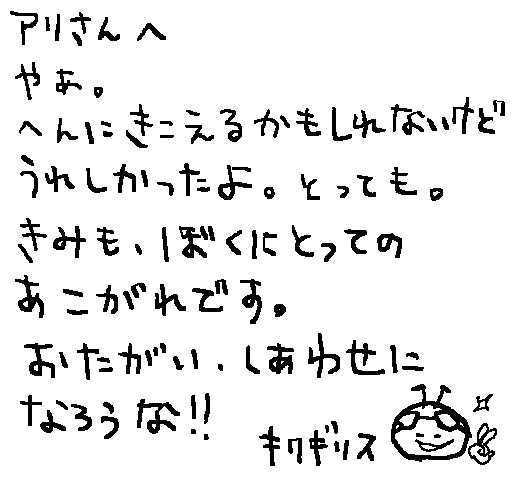 アリさんへ
やあ。
へんにきこえるかもしれないけど
うれしかったよ。とっても。
きみも、ぼくにとっての
あこがれです。
おたがい、しあわせに
なろうな!!
キリギリス